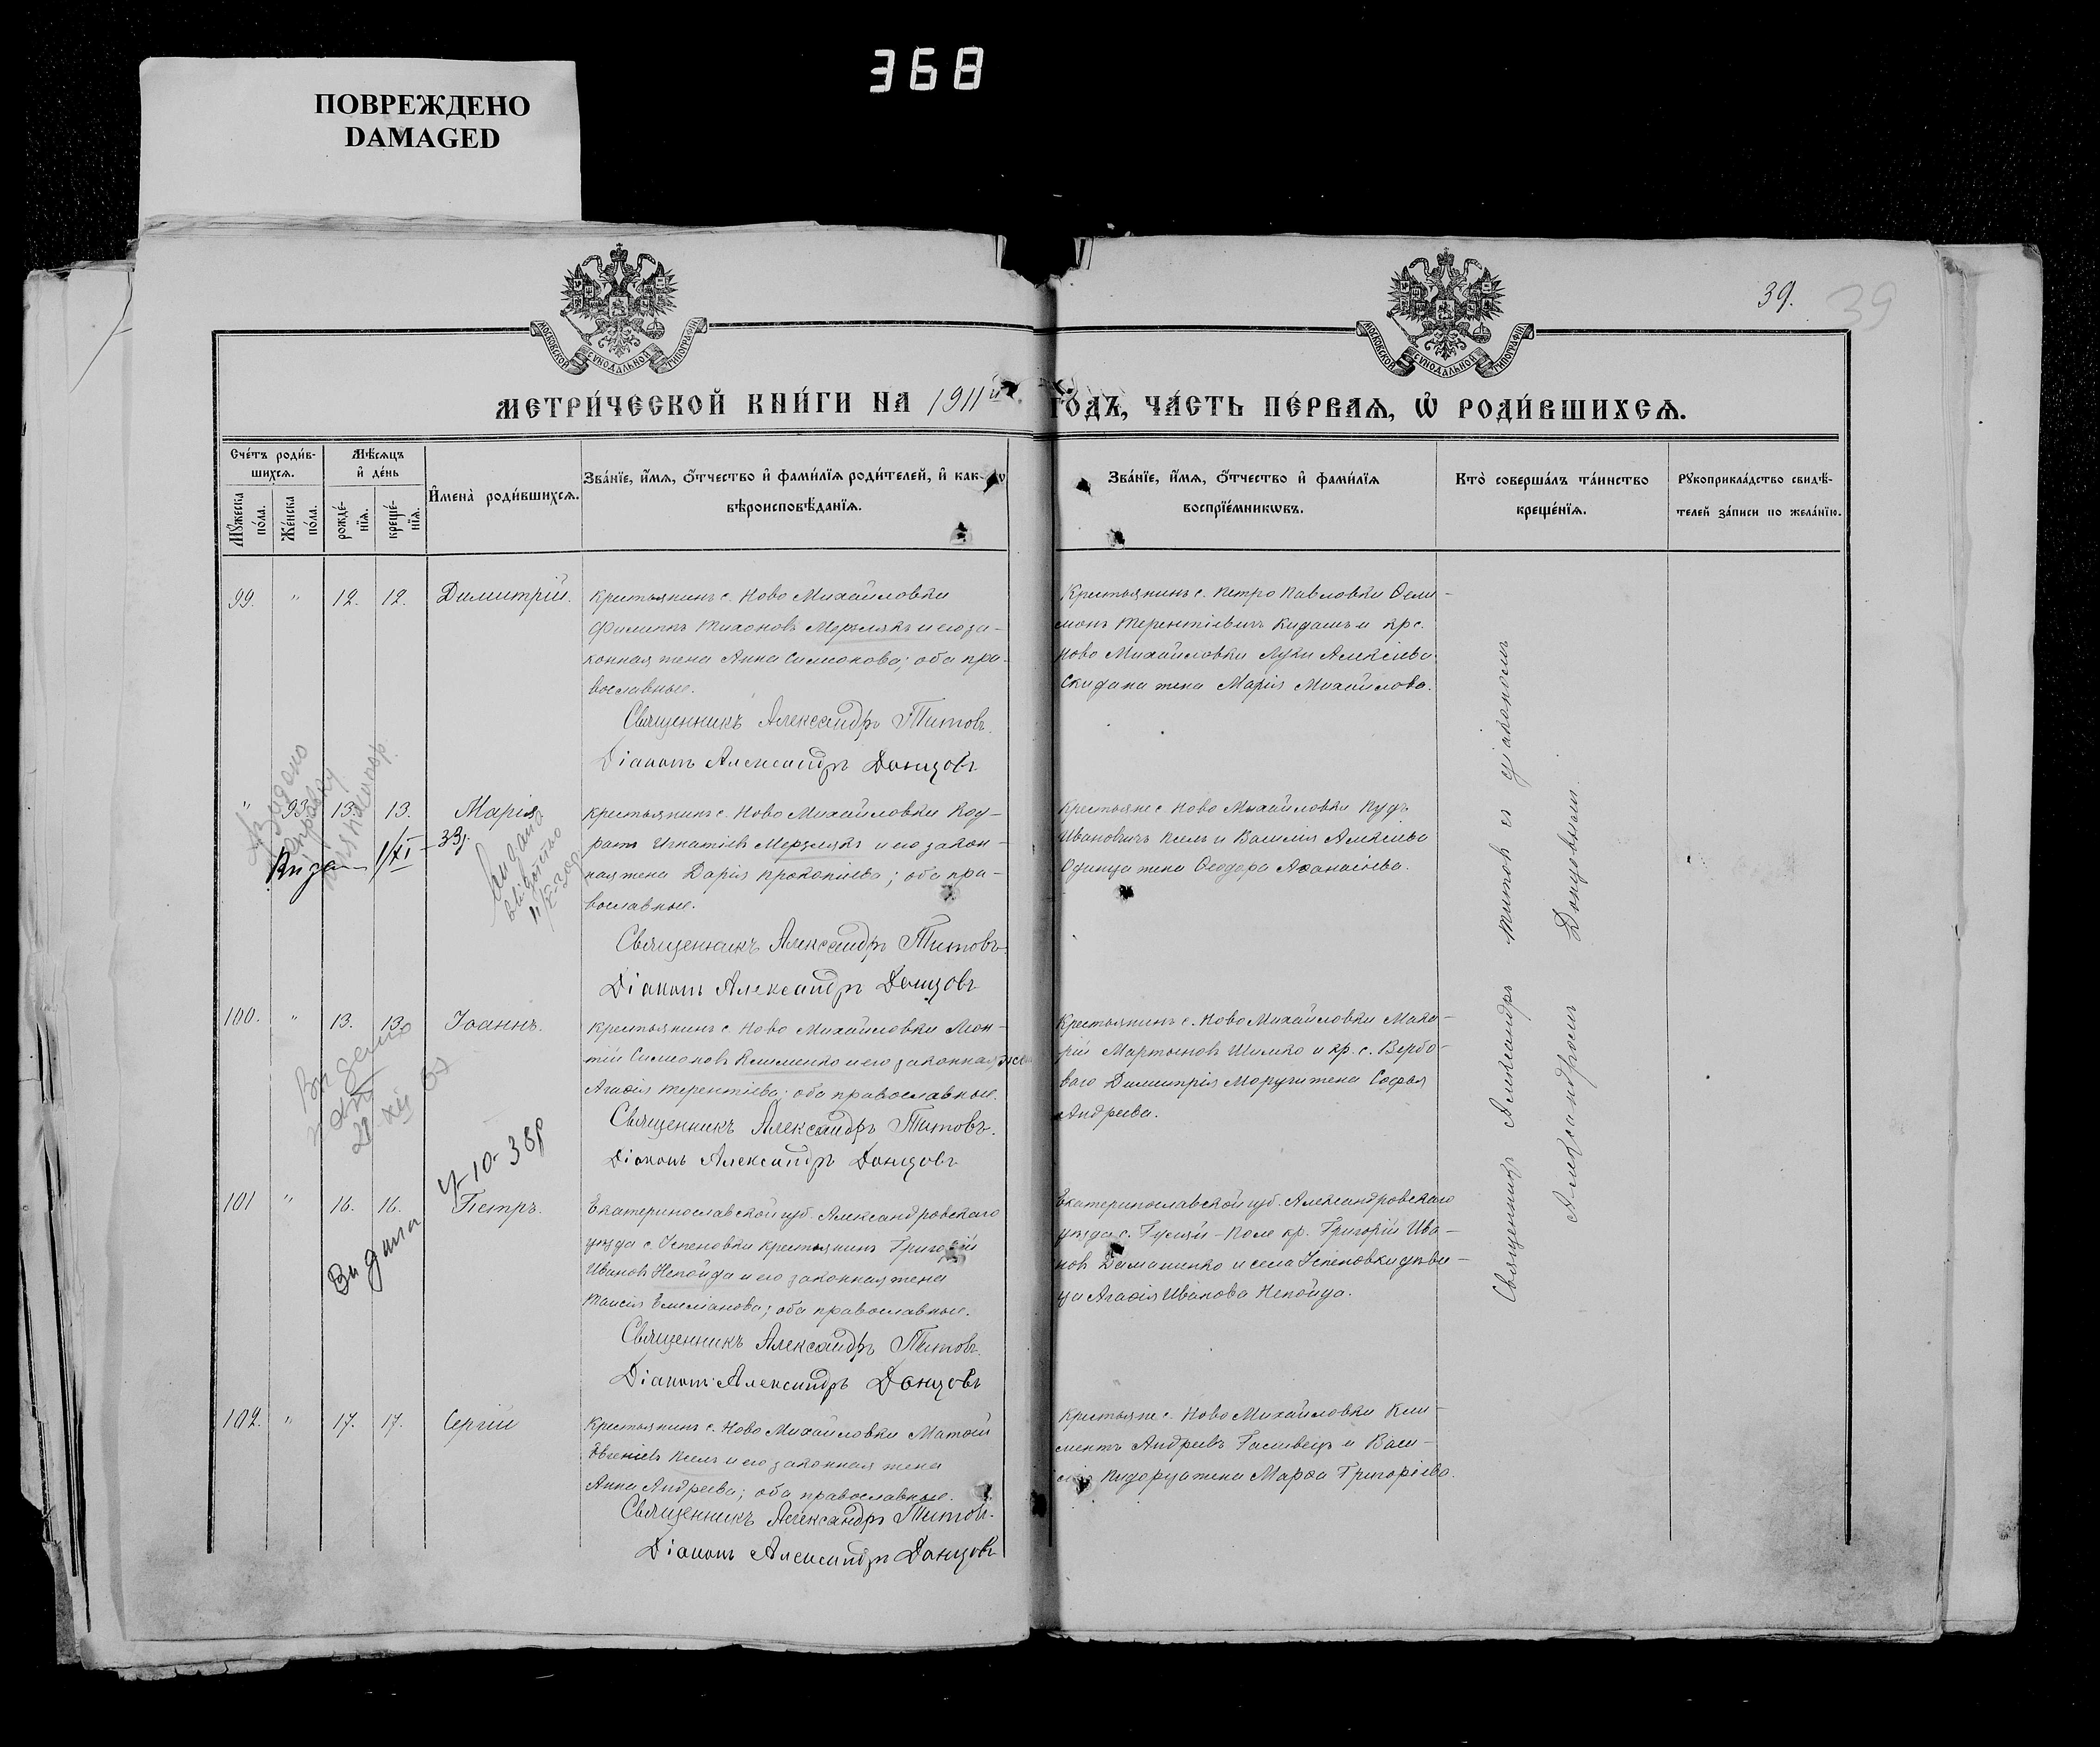 368
ПОВРЕЖДЕНО
DAMAGED
39.
39
МОСКОВСКОЙ СѴНОДАЛЬНОЙ ТИПОГРАФІИ
МОСКОВСКОЙ СѴНОДАЛЬНОЙ ТИПОГРАФІИ
МЕТРИ́ЧЕСКОЙ КНИ́ГИ НА 1911й ГОДЪ, ЧА́СТЬ ПЕ́РВАѦ, Ѡ҆ РОДИ́ВШИХСѦ.
Сче́тъ роди́в-
шихсѧ.
Мꙋжеска
по́ла.
Же́нска
по́ла.
Мѣ́сѧцъ
и҆ де́нь
рожде́-
нїѧ.
креще́-
нїѧ.
И҆мена̀ роди́вшихсѧ.
Зва́нїе, и҆́мѧ, ѻ҆́тчество и҆ фами́лїѧ роди́телей, и҆ как-
вѣроисповѣ́данїѧ.
Зва́нїе, и҆́мѧ, ѻ҆́тчество и҆ фами́лїѧ
воспрїе́мникѡвъ.
Кто̀ соверша́лъ та́инство
креще́нїѧ.
Рꙋкоприкла́дство свидѣ́-
телей за́писи по жела́нїю.
99. " 12. 12. Димитрій.
Крестьянинъ с. Ново Михайловки
Филиппъ Тихоновъ Мерзлякъ и его за-
конная жена Анна Симеонова; оба пра-
вославные.
Священникъ Александръ Титовъ.
Діаконъ Александръ Донцовъ
Крестьянинъ с. Петро Павловки Фили-
монъ Терентіевичъ Кидашъ и кр с.
Ново Михайловки Луки Алексіева
Скидана жена Марія Михайлова.
" 93. 13. 13. Марія
Крестьянинъ с. Ново Михайловки Код-
ратъ Игнатіевъ Мерзлякъ и его закон-
ная жена Дарія Прокопіева; оба пра-
вославные.
Священникъ Александръ Титовъ.
Діаконъ Александръ Донцовъ
Крестьяне с. Ново Михайловки
Ивановичъ и Василія Алексіева
Одинца жена Феодора Афанасіева.
100. " 13. 13. Іоаннъ.
Крестьянинъ с. Ново Михайловки Леон-
тій Симеоновъ Клименко и его законная жена
Агафія Терентіева; оба православные.
Священникъ Александръ Титовъ.
Діаконъ Александръ Донцовъ
Крестьянинъ с. Ново Михайловки Мака-
рій Мартыновъ Шимко и кр. с. Вербо-
ваго Димитрія жена Софья
Андреева.
4-10-38р
101 " 16. 16. Петръ.
Видана
Екатеринославской губ. Александровскаго
уѣзда с. Успеновки крестьянинъ Григорій
Ивановъ Непойда и его законная жена
Таисія Емеліанова; оба православные.
Священникъ Александръ Титовъ.
Діаконъ Александръ Донцовъ
Екатеринославской губ. Александровскаго
уѣзда с. Гуляй-Поле кр. Григорій Ива-
новъ Домашенко и села Успеновки дѣви-
ца Агафія Иванова Непойда.
102. " 17. 17. Сергій
Крестьянинъ с. Ново Михайловки Матфій
Евгеніевъ и его законная жена
Анна Андреева; оба православные.
Священникъ Александръ Титовъ.
Діаконъ Александръ Донцовъ
Крестьяне с. Ново Михайловки Кли-
ментъ Андреевъ и Васи-
жена Марфа Григоріева.
Священникъ Александръ Титовъ съ діакономъ
Александромъ Донцовымъ.